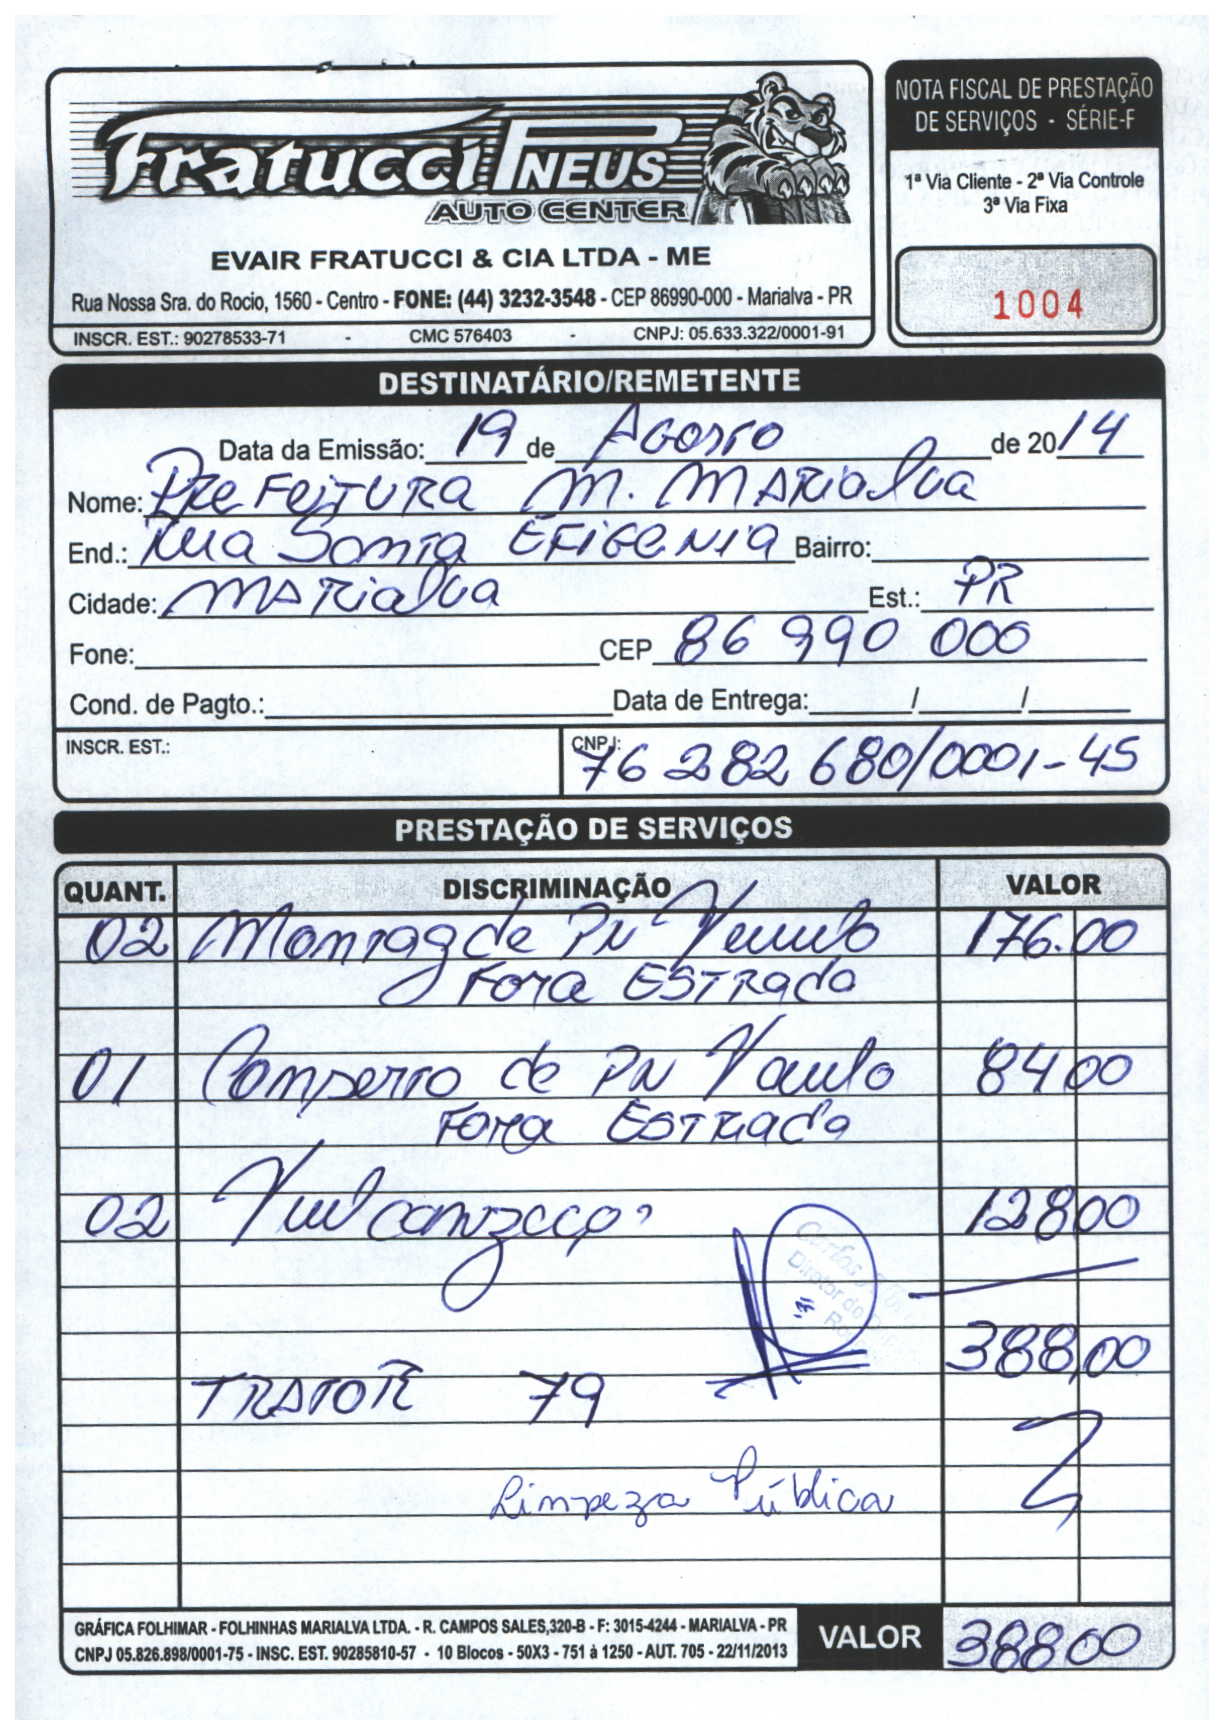 Fratucci PNEUS
AUTO CENTER
EVAIR FRATUCCI & CIA LTDA - ME
Rua Nossa Sra. do Rocio, 1560 - Centro - FONE: (44) 3232-3548 - CEP 86990-000 - Marialva - PR
INSCR. EST.: 90278533-71 - CMC 576403 - CNPJ: 05.633.322/0001-91
NOTA FISCAL DE PRESTAÇÃO
DE SERVIÇOS - SÉRIE-F
1ª Via Cliente - 2ª Via Controle
3ª Via Fixa
1004
DESTINATÁRIO/REMETENTE
Data da Emissão: 19 de Agosto de 2014
Nome: Prefeitura M. Marialva
End.: Rua Santa Efigenia Bairro:
Cidade: Marialva Est.: PR
Fone: CEP 86 990 000
Cond. de Pagto.: Data de Entrega: / /
INSCR. EST.: CNPJ: 76 282 680/0001-45
PRESTAÇÃO DE SERVIÇOS
QUANT. DISCRIMINAÇÃO VALOR
02 Montag de PN 176.00
Fora Estrada
01 Conserto de PN 84 00
Fora Estrada
02 128 00
Diretor do
388,00
TRATOR 79
Limpeza Pública
GRÁFICA FOLHIMAR - FOLHINHAS MARIALVA LTDA. - R. CAMPOS SALES,320-B - F: 3015-4244 - MARIALVA - PR
CNPJ 05.826.898/0001-75 - INSC. EST. 90285810-57 - 10 Blocos - 50X3 - 751 à 1250 - AUT. 705 - 22/11/2013
VALOR 388 00